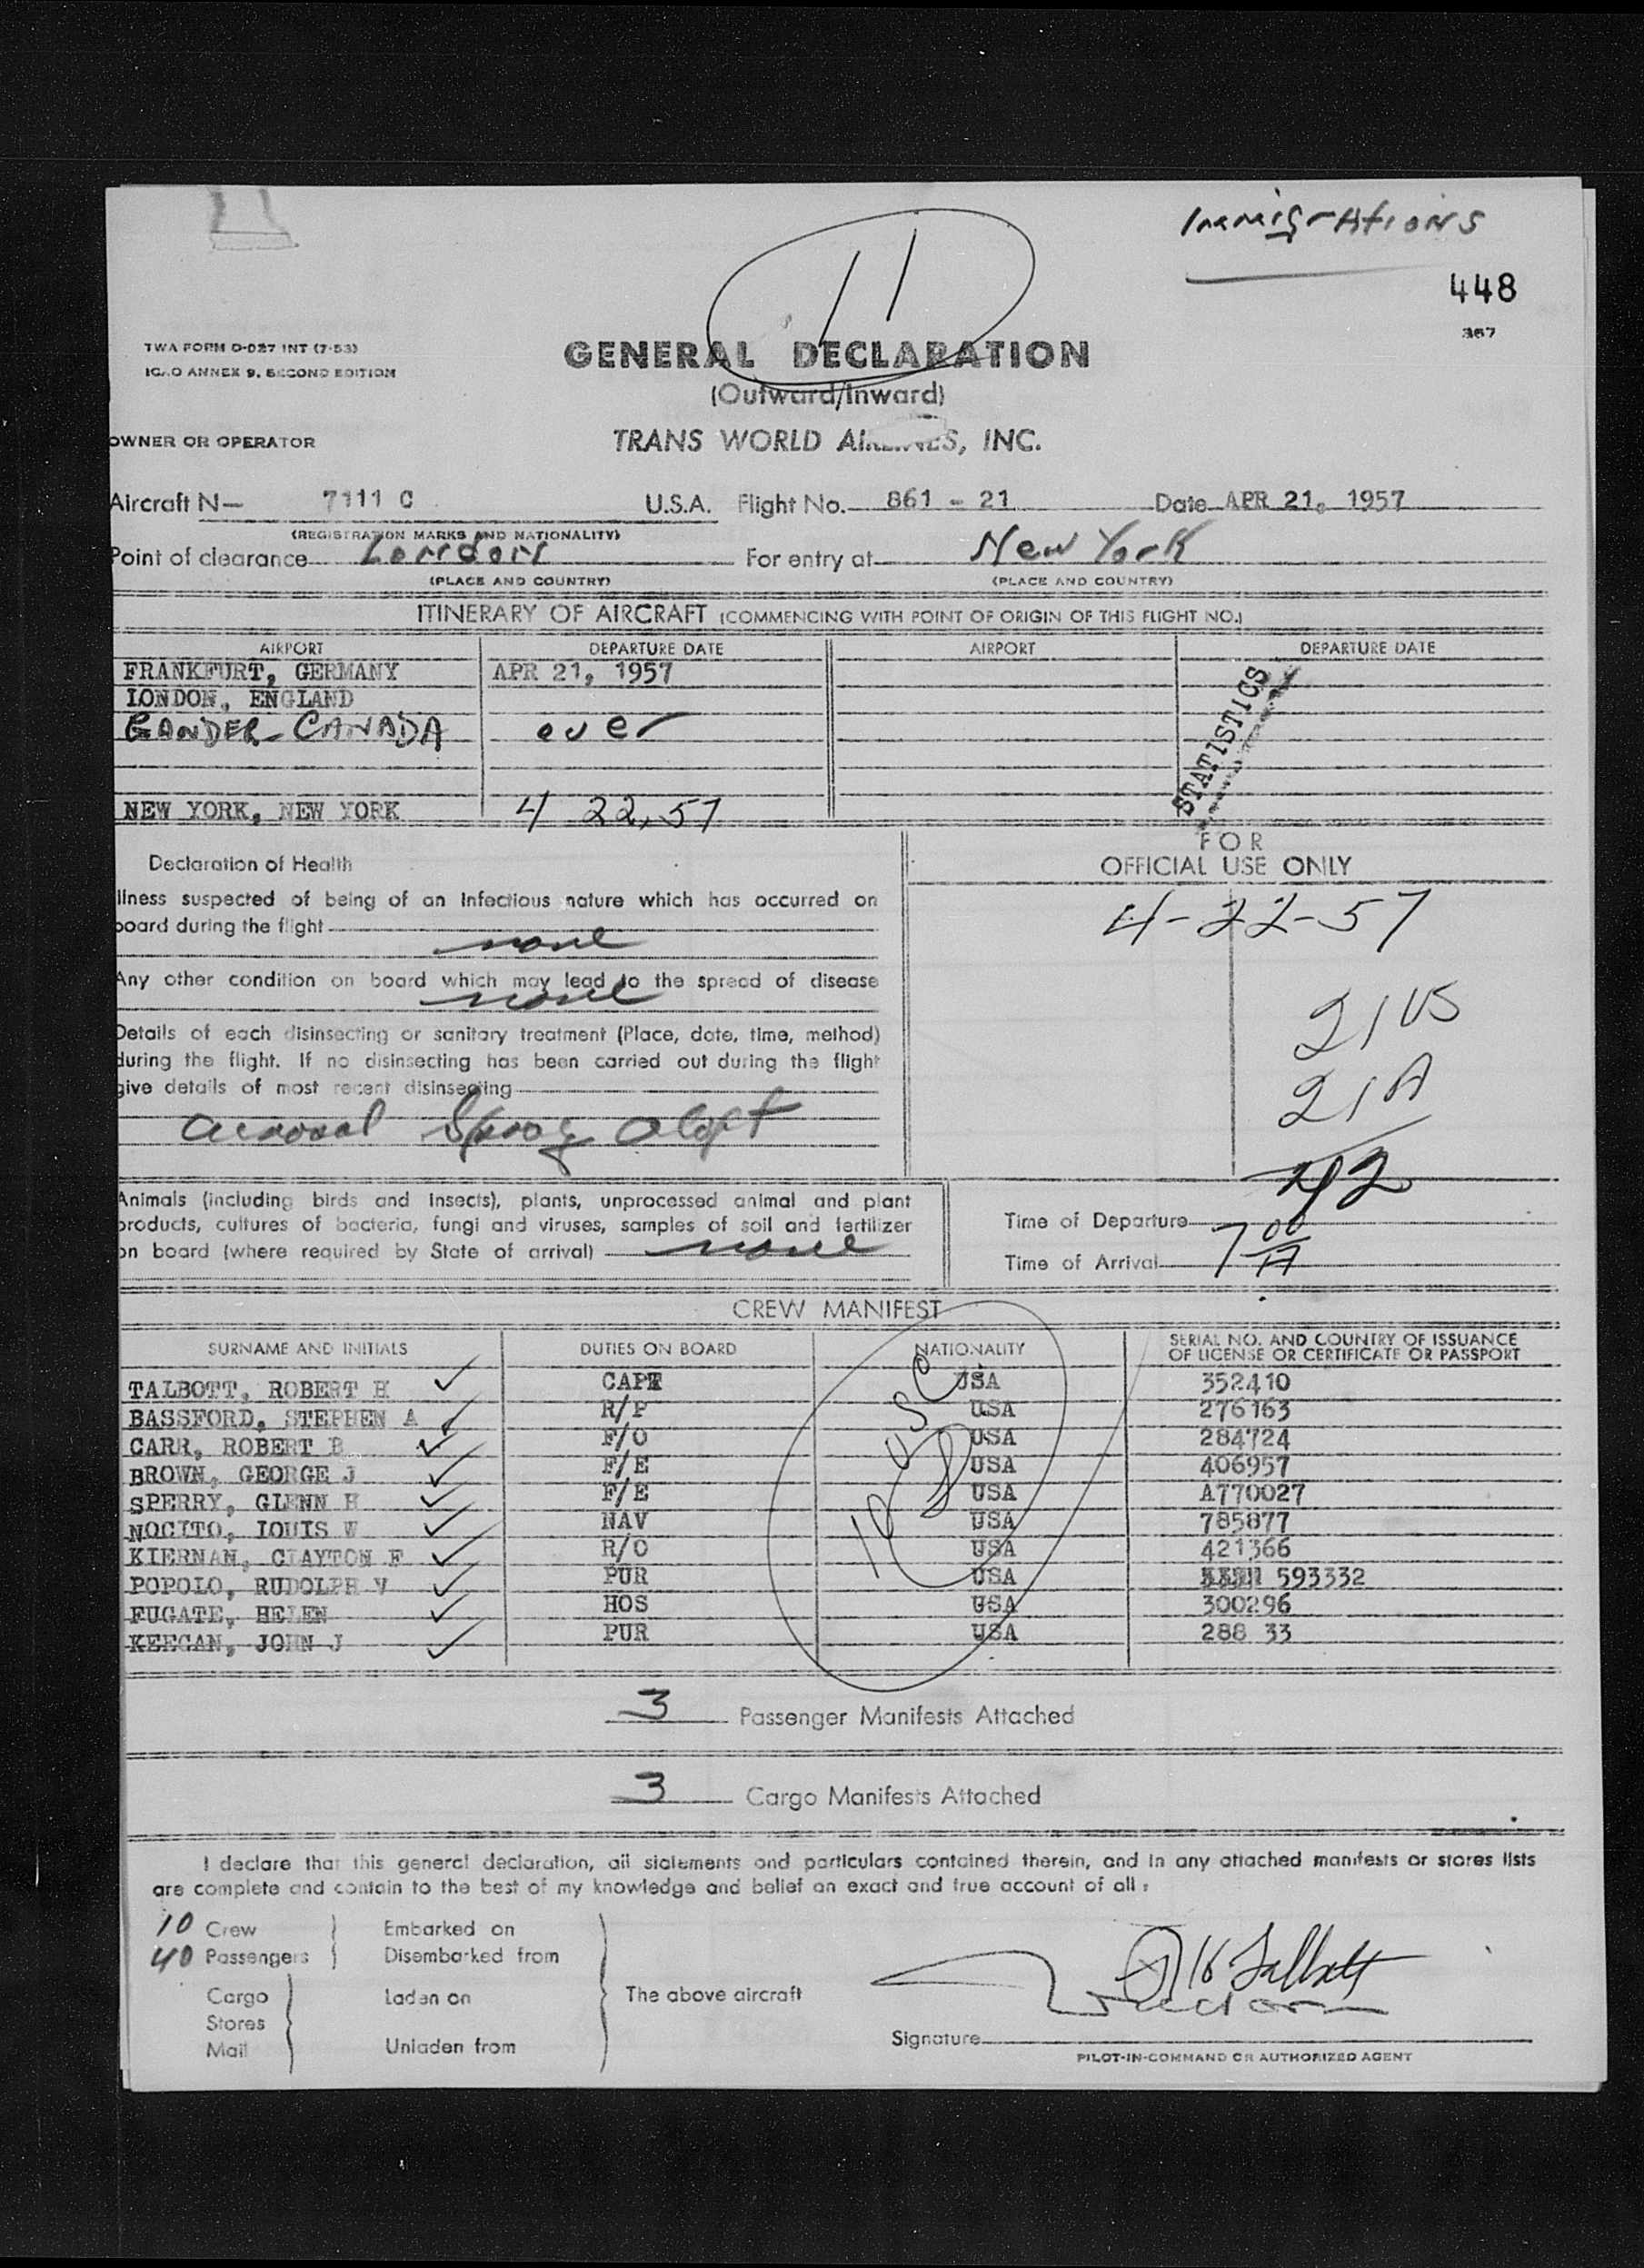 ImmigrAtions
11
448
367
TWA FORM O-027 INT (7-53)
ICAO ANNEX 9, SECOND EDITION
GENERAL DECLARATION
(Outward/Inward)
OWNER OR OPERATOR
TRANS WORLD AIRLINES, INC.
Aircraft N— 7111 C U.S.A. Flight No. 861 - 21 Date APR 21, 1957
(REGISTRATION MARKS AND NATIONALITY)
Point of clearance London For entry at New York
(PLACE AND COUNTRY) (PLACE AND COUNTRY)
ITINERARY OF AIRCRAFT (COMMENCING WITH POINT OF ORIGIN OF THIS FLIGHT NO.)
AIRPORT DEPARTURE DATE AIRPORT DEPARTURE DATE
FRANKFURT, GERMANY APR 21, 1957
LONDON, ENGLAND
GANDER - CANADA over
NEW YORK, NEW YORK 4 22, 57
STATISTICS
Declaration of Health
FOR
OFFICIAL USE ONLY
Illness suspected of being of an Infectious nature which has occurred on
board during the flight none
Any other condition on board which may lead to the spread of disease
none
Details of each disinsecting or sanitary treatment (Place, date, time, method)
during the flight. If no disinsecting has been carried out during the flight
give details of most recent disinsecting
Aerosol Spray Aloft
4-22-57
21 US
21 A
42
Animals (including birds and insects), plants, unprocessed animal and plant
products, cultures of bacteria, fungi and viruses, samples of soil and fertilizer
on board (where required by State of arrival) none
Time of Departure
Time of Arrival 7 00 A
CREW MANIFEST
SURNAME AND INITIALS DUTIES ON BOARD NATIONALITY SERIAL NO. AND COUNTRY OF ISSUANCE
OF LICENSE OR CERTIFICATE OR PASSPORT
TALBOTT, ROBERT H CAPT USA 352410
BASSFORD, STEPHEN A R/P USA 276163
CARR, ROBERT B F/O USA 284724
BROWN, GEORGE J F/E USA 406957
SPERRY, GLENN H F/E USA A770027
NOCITO, LOUIS W NAV USA 785877
KIERNAN, CLAYTON F R/O USA 421366
POPOLO, RUDOLPH V PUR USA 593332
FUGATE, HELEN HOS USA 300296
KEEGAN, JOHN J PUR USA 288 33
10 USC
3 Passenger Manifests Attached
3 Cargo Manifests Attached
I declare that this general declaration, all statements and particulars contained therein, and in any attached manifests or stores lists
are complete and contain to the best of my knowledge and belief an exact and true account of all :
10 Crew Embarked on
40 Passengers Disembarked from
Cargo Laden on The above aircraft
Stores
Mail Unladen from
Talbott
Signature
PILOT-IN-COMMAND OR AUTHORIZED AGENT